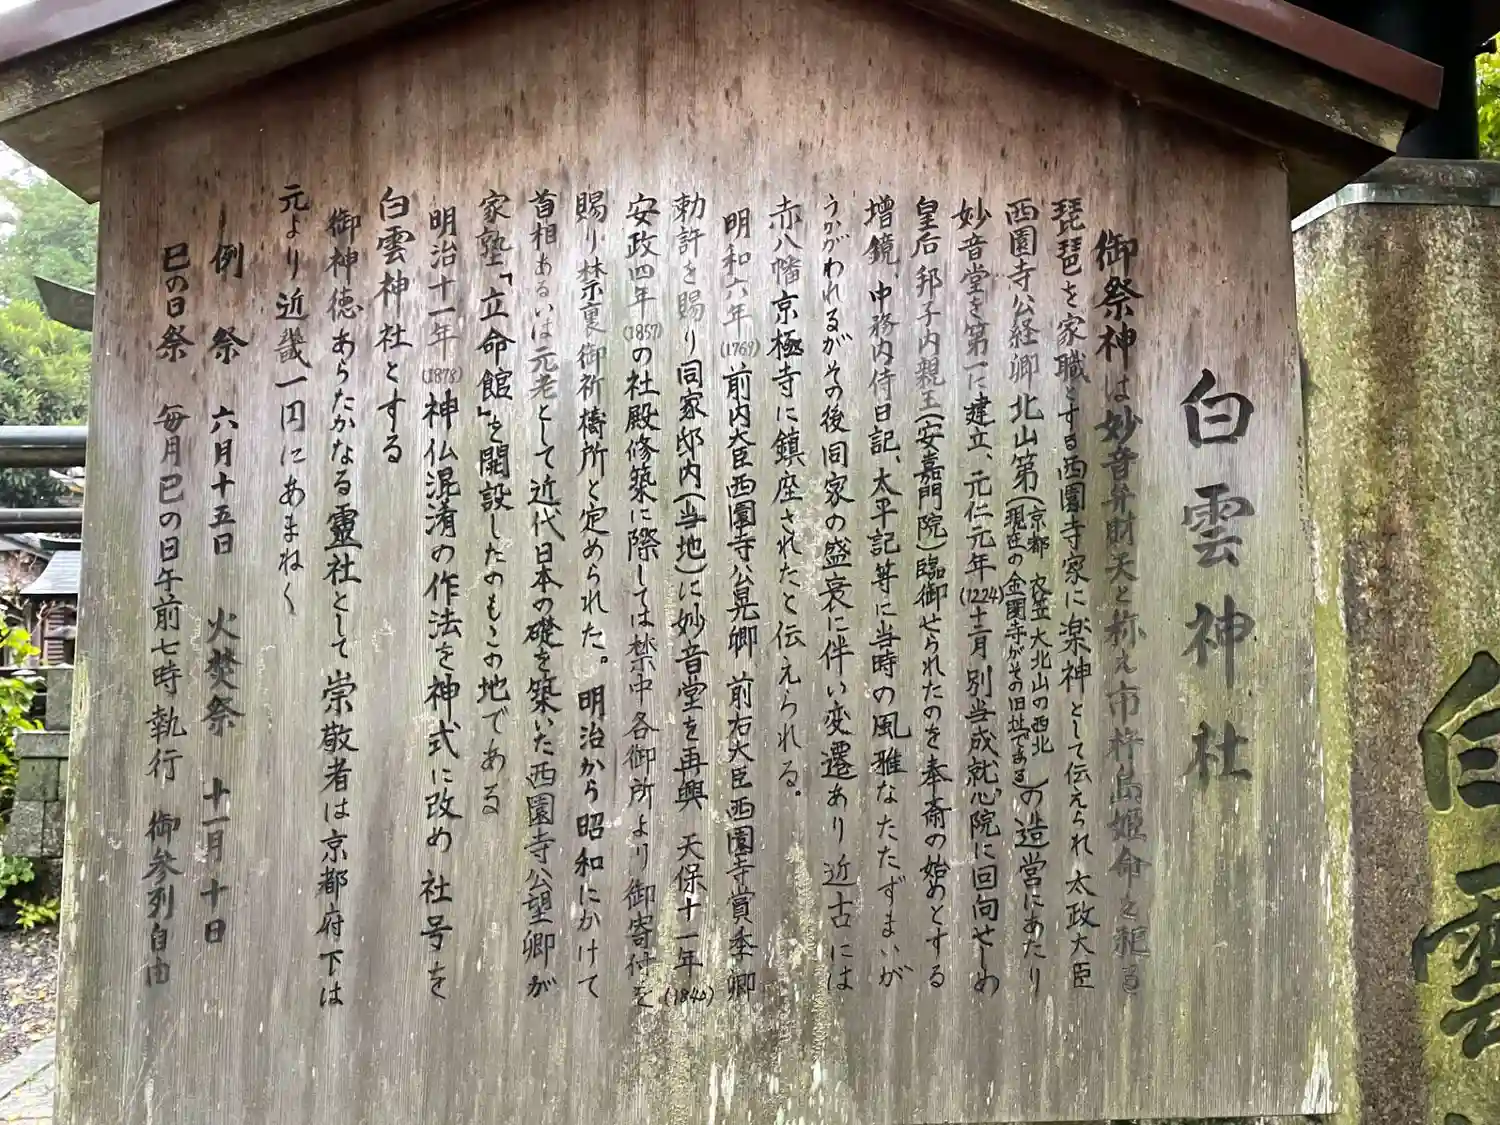 白雲神社
御祭神は妙音弁財天と称え市杵島姫命を祀る
琵琶を家職とする西園寺家に楽神として伝えられ 太政大臣
西園寺公経卿北山第(京都 衣笠 大北山の西北 現在の金閣寺がその旧址である)の造営にあたり
妙音堂を第一に建立、元仁元年(1224)十二月別当成就心院に回向せしめ
皇后邦子内親王(安嘉門院)臨御せられたのを奉斎の始めとする
増鏡、中務内侍日記、太平記等に当時の風雅なたたずまいが
うかがわれるがその後同家の盛衰に伴い変遷あり近古には
赤八幡京極寺に鎮座されたと伝えられる。
明和六年(1769)前内大臣西園寺公晃卿 前右大臣西園寺賞季卿
勅許を賜り同家邸内(当地)に妙音堂を再興 天保十一年(1840)
安政四年(1857)の社殿修築に際しては禁中各御所より御寄付を
賜り禁裏御祈祷所と定められた。明治から昭和にかけて
首相あるいは元老として近代日本の礎を築いた西園寺公望卿が
家塾「立命館」を開設したのもこの地である
明治十一年(1878)神仏混淆の作法を神式に改め 社号を
白雲神社とする
御神徳あらたかなる靈社として崇敬者は京都府下は
元より近畿一円にあまねく
例 祭 六月十五日 火焚祭 十一月十日
巳の日祭 毎月巳の日午前七時執行 御参列自由
白雲